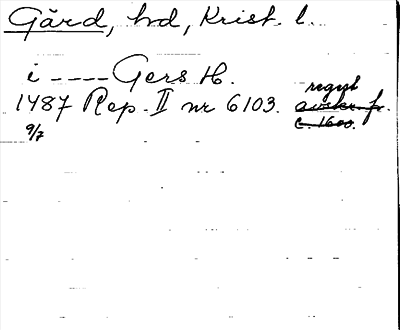 Gärd, hd, Krist. l.
i ---- Gers H.
1487 Rep. II nr 6103. regist
avskr. fr.
9/7 c. 1600.